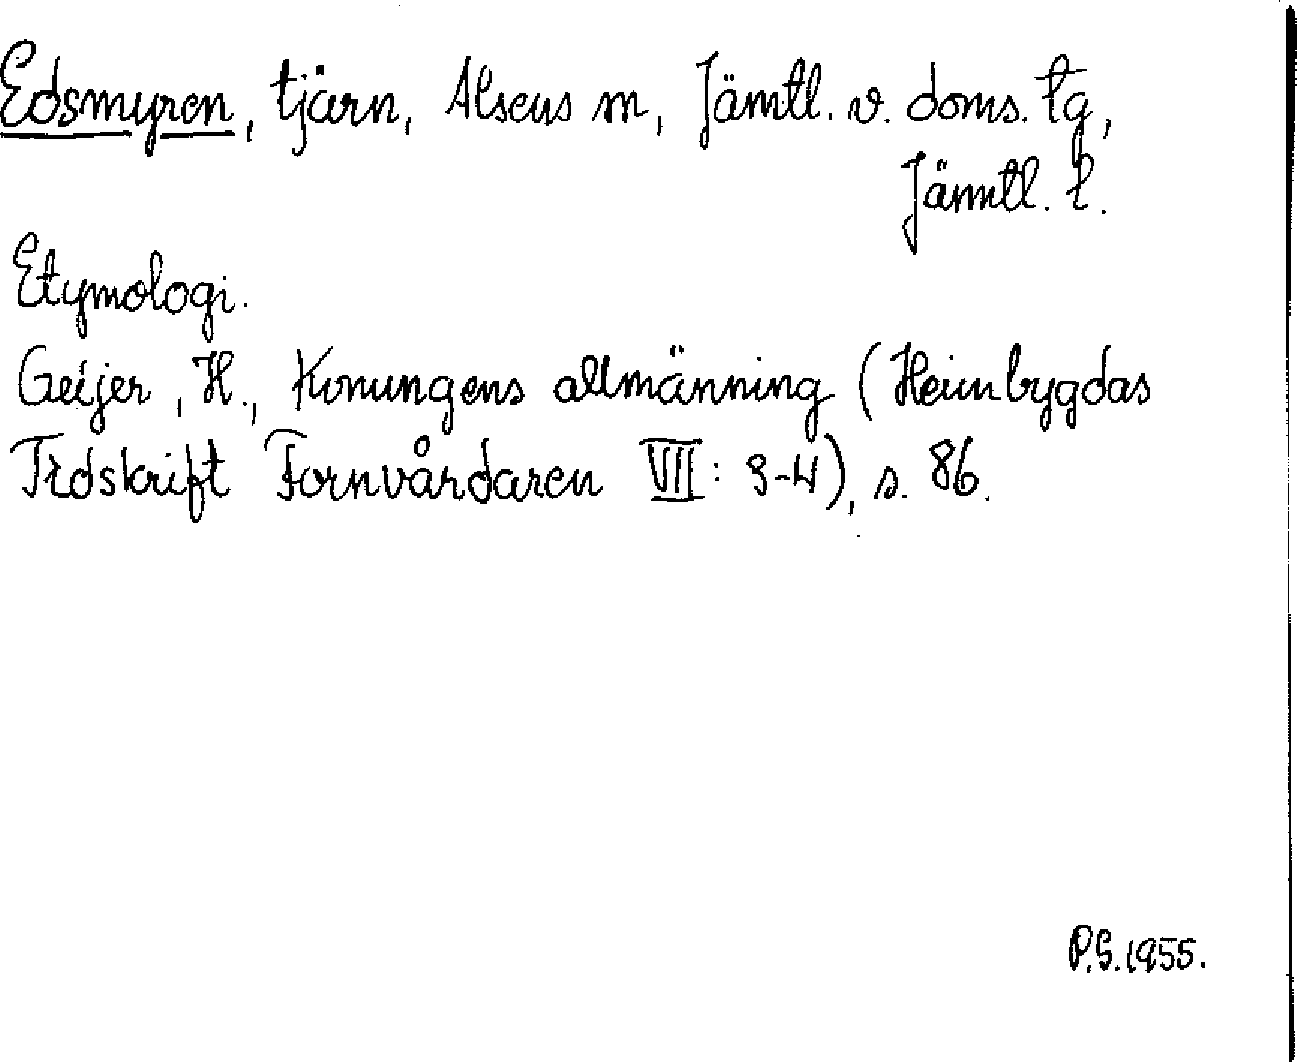 Edsmyren, tjärn, Alsens sn, Jämtl. v. doms. tg,
Jämtl. l.
Etymologi.
Geijer, H., Konungens allmänning (Heimbygdas
Tidskrift Fornvårdaren VII: 3-4), s. 86.
P.G. 1955.